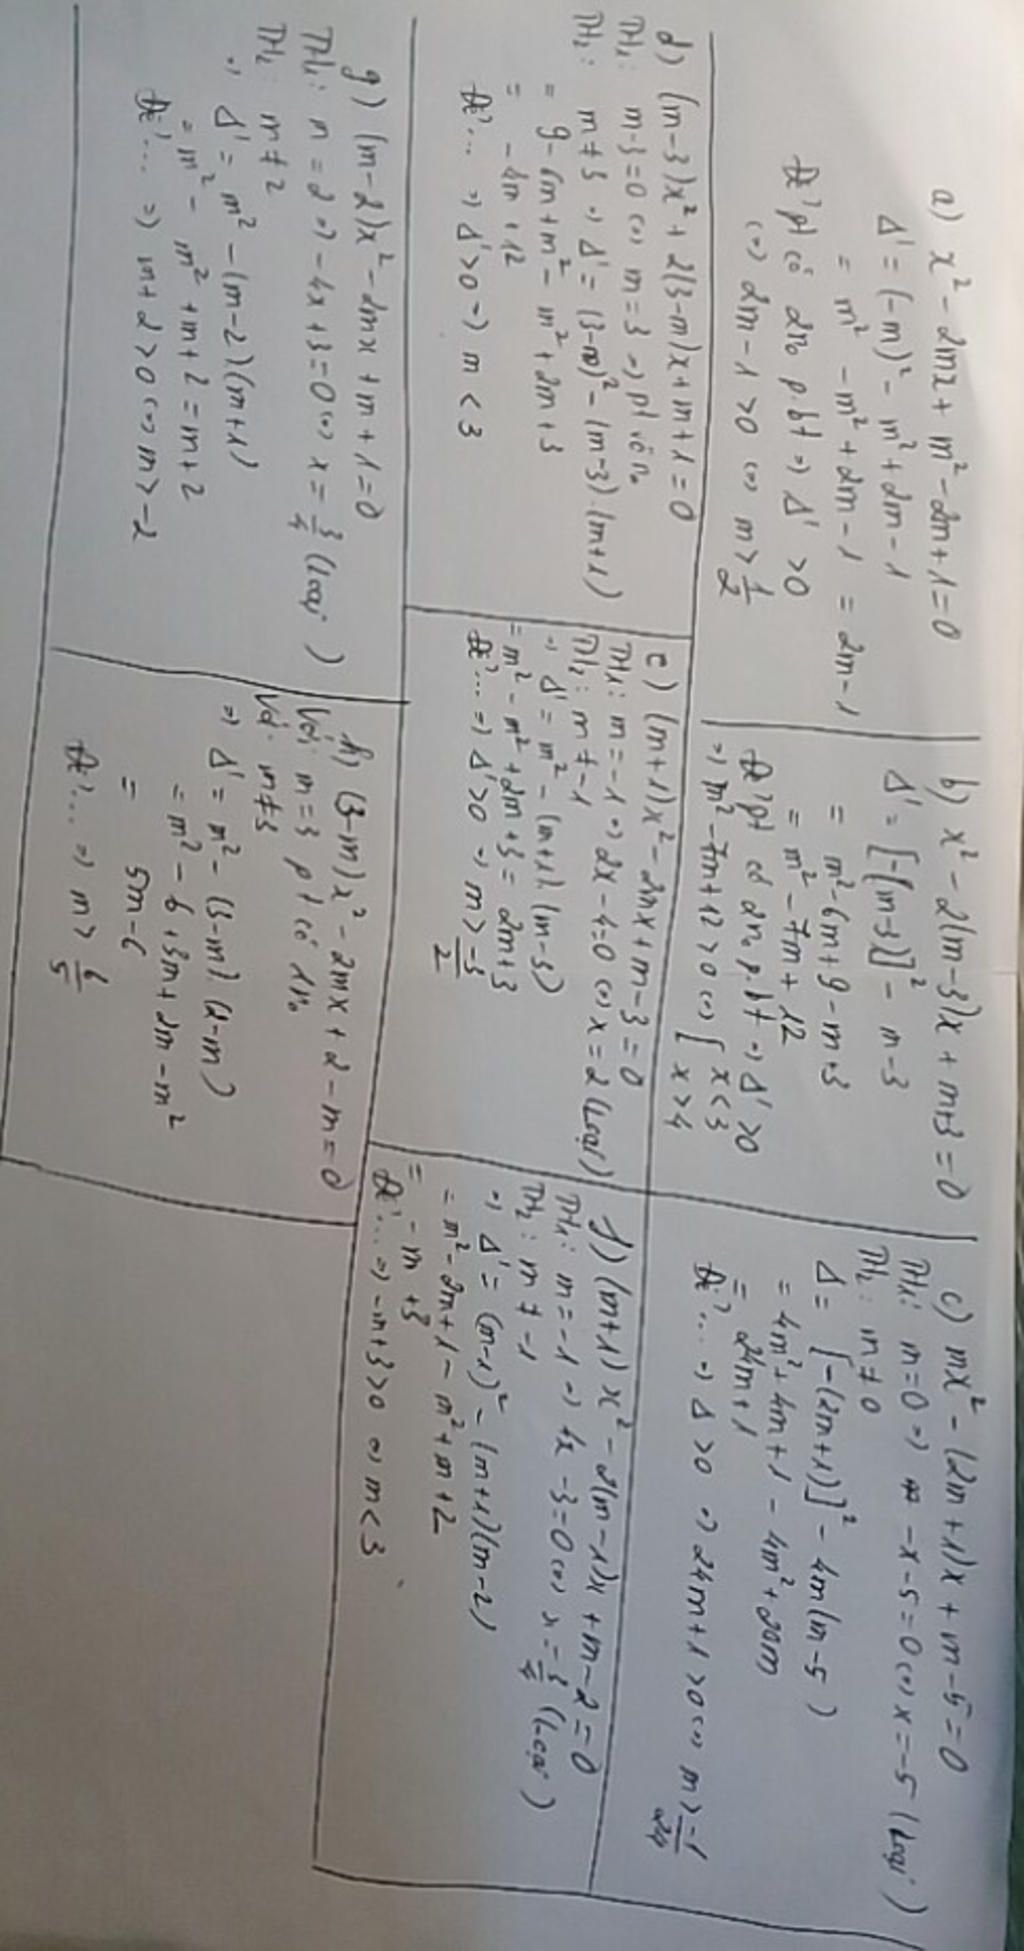 a) x² - 2mx + m² - 2m + 1 = 0
Δ' = (-m)² - m² + 2m - 1
= m² - m² + 2m - 1 = 2m - 1
Để pt có 2n₀ p.bt => Δ' > 0
<=> 2m - 1 > 0 <=> m > 1/2
b) x² - 2(m-3)x + m+3 = 0
Δ' = [-(m-3)]² - m-3
= m² - 6m + 9 - m + 3
= m² - 7m + 12
Để pt có 2n₀ p.bt => Δ' > 0
=> m² - 7m + 12 > 0 <=> [ x < 3
x > 4
c) mx² - (2m+1)x + m - 5 = 0
TH₁: m = 0 => -x - 5 = 0 <=> x = -5 (Loại)
TH₂: m ≠ 0
Δ = [-(2m+1)]² - 4m(m-5)
= 4m² + 4m + 1 - 4m² + 20m
= 24m + 1
Để... => Δ > 0 => 24m + 1 > 0 <=> m > -1/24
d) (m-3)x² + 2(3-m)x + m + 1 = 0
TH₁: m-3 = 0 <=> m = 3 => pt vô n₀
TH₂: m ≠ 3 => Δ' = (3-m)² - (m-3).(m+1)
= 9 - 6m + m² - m² + 2m + 3
= -4m + 12
Để... => Δ' > 0 => m < 3
e) (m+1)x² - 2mx + m - 3 = 0
TH₁: m = -1 => 2x - 4 = 0 <=> x = 2 (Loại)
TH₂: m ≠ -1
=> Δ' = m² - (m+1).(m-3)
= m² - m² + 2m + 3 = 2m + 3
Để... => Δ' > 0 => m > -3/2
f) (m+1)x² - 2(m-1)x + m - 2 = 0
TH₁: m = -1 => 4x - 3 = 0 <=> x = 3/4 (Loại)
TH₂: m ≠ -1
=> Δ' = (m-1)² - (m+1)(m-2)
= m² - 2m + 1 - m² + m + 2
= -m + 3
Để... => -m + 3 > 0 => m < 3
g) (m-2)x² - 2mx + m + 1 = 0
TH₁: m = 2 => -4x + 3 = 0 <=> x = 3/4 (Loại)
TH₂: m ≠ 2
=> Δ' = m² - (m-2)(m+1)
= m² - m² + m + 2 = m + 2
Để... => m + 2 > 0 <=> m > -2
h) (3-m)x² - 2mx + 2 - m = 0
Với m = 3 pt có 1n₀
Với m ≠ 3
=> Δ' = m² - (3-m).(2-m)
= m² - 6 + 3m + 2m - m²
= 5m - 6
Để... => m > 6/5